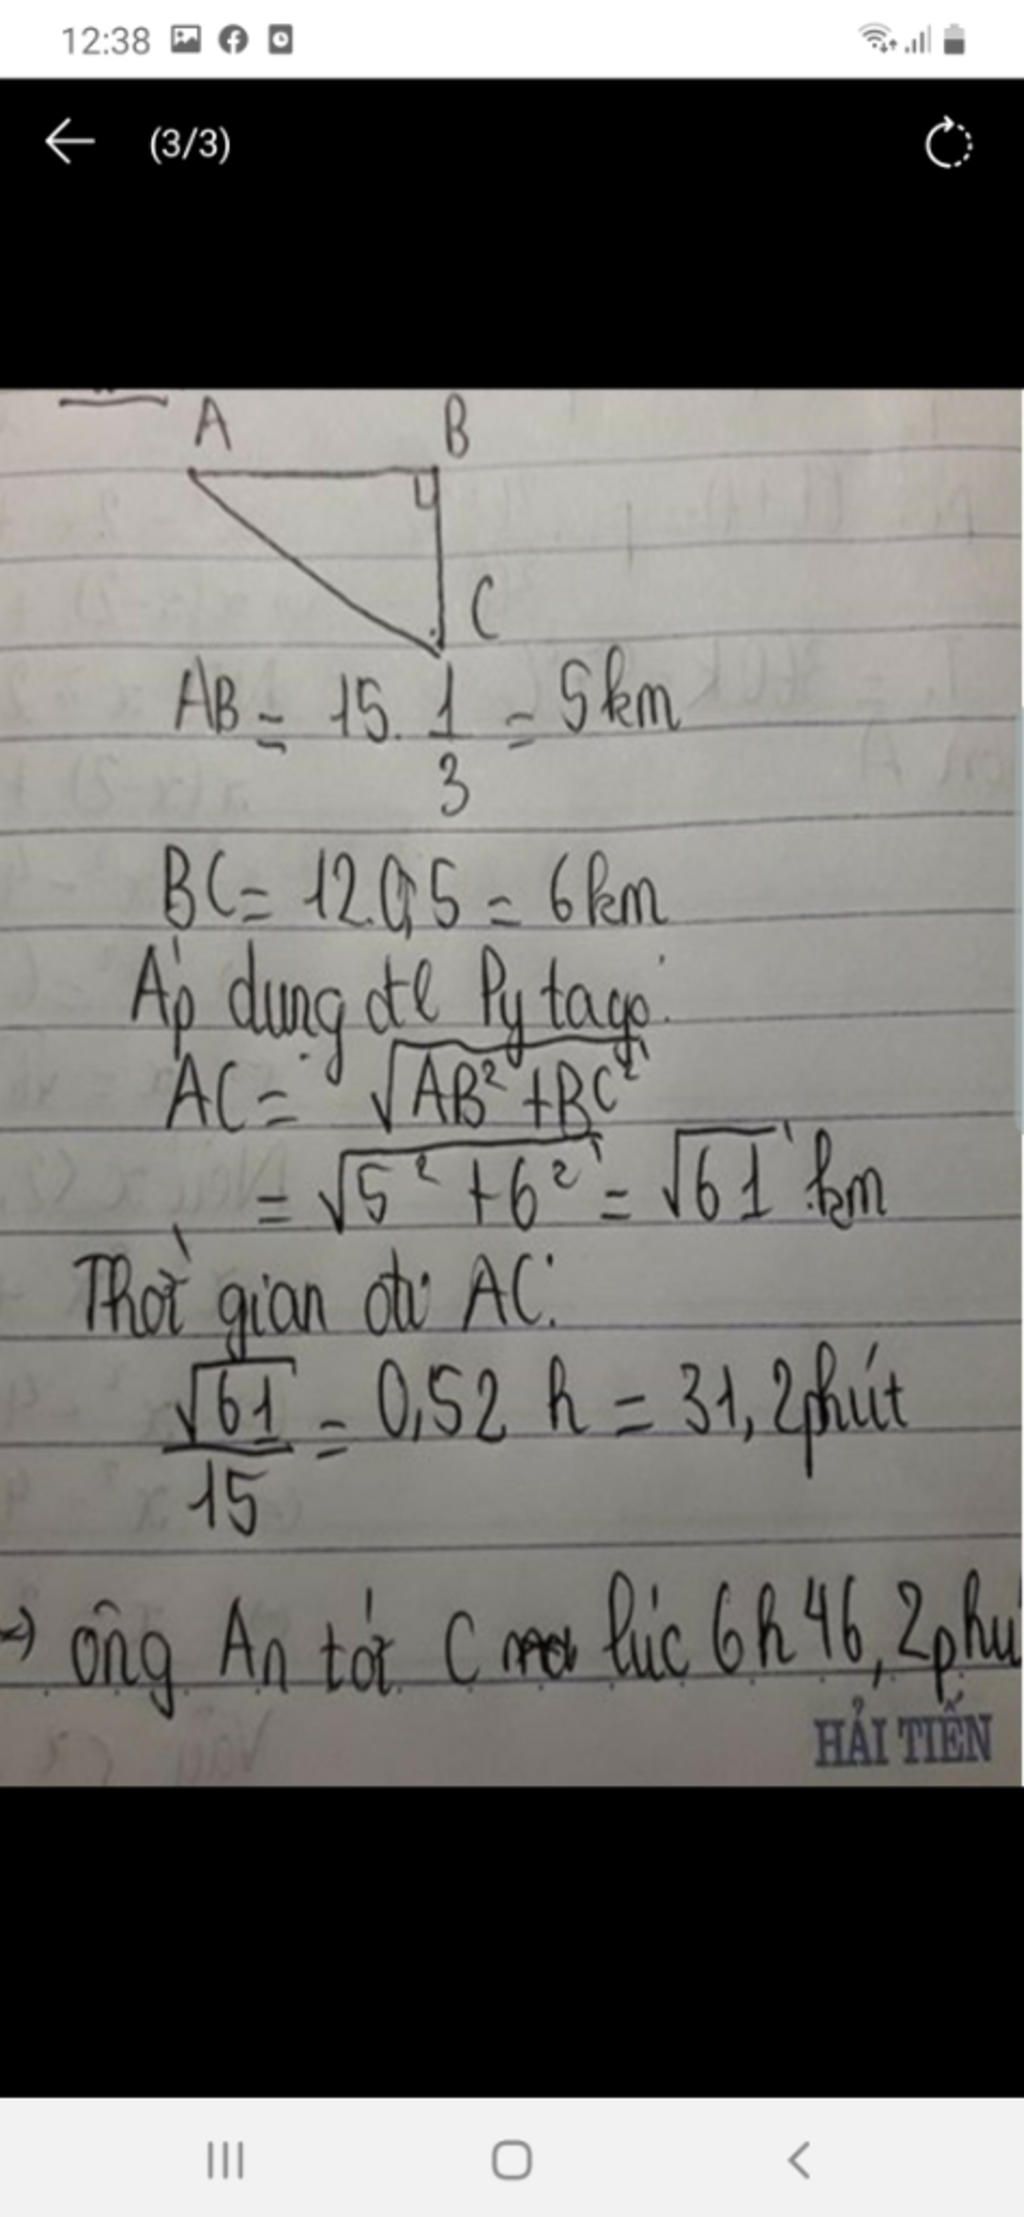 12:38
(3/3)
A B
C
AB = 15. 1/3 = 5km
BC = 12.0,5 = 6km
Áp dụng đl Pytago:
AC = √AB² + BC²
= √5² + 6² = √61 km
Thời gian đi AC:
√61/15 = 0,52 h = 31,2 phút
=> ông An tới C lúc 6h46,2phú
HẢI TIẾN